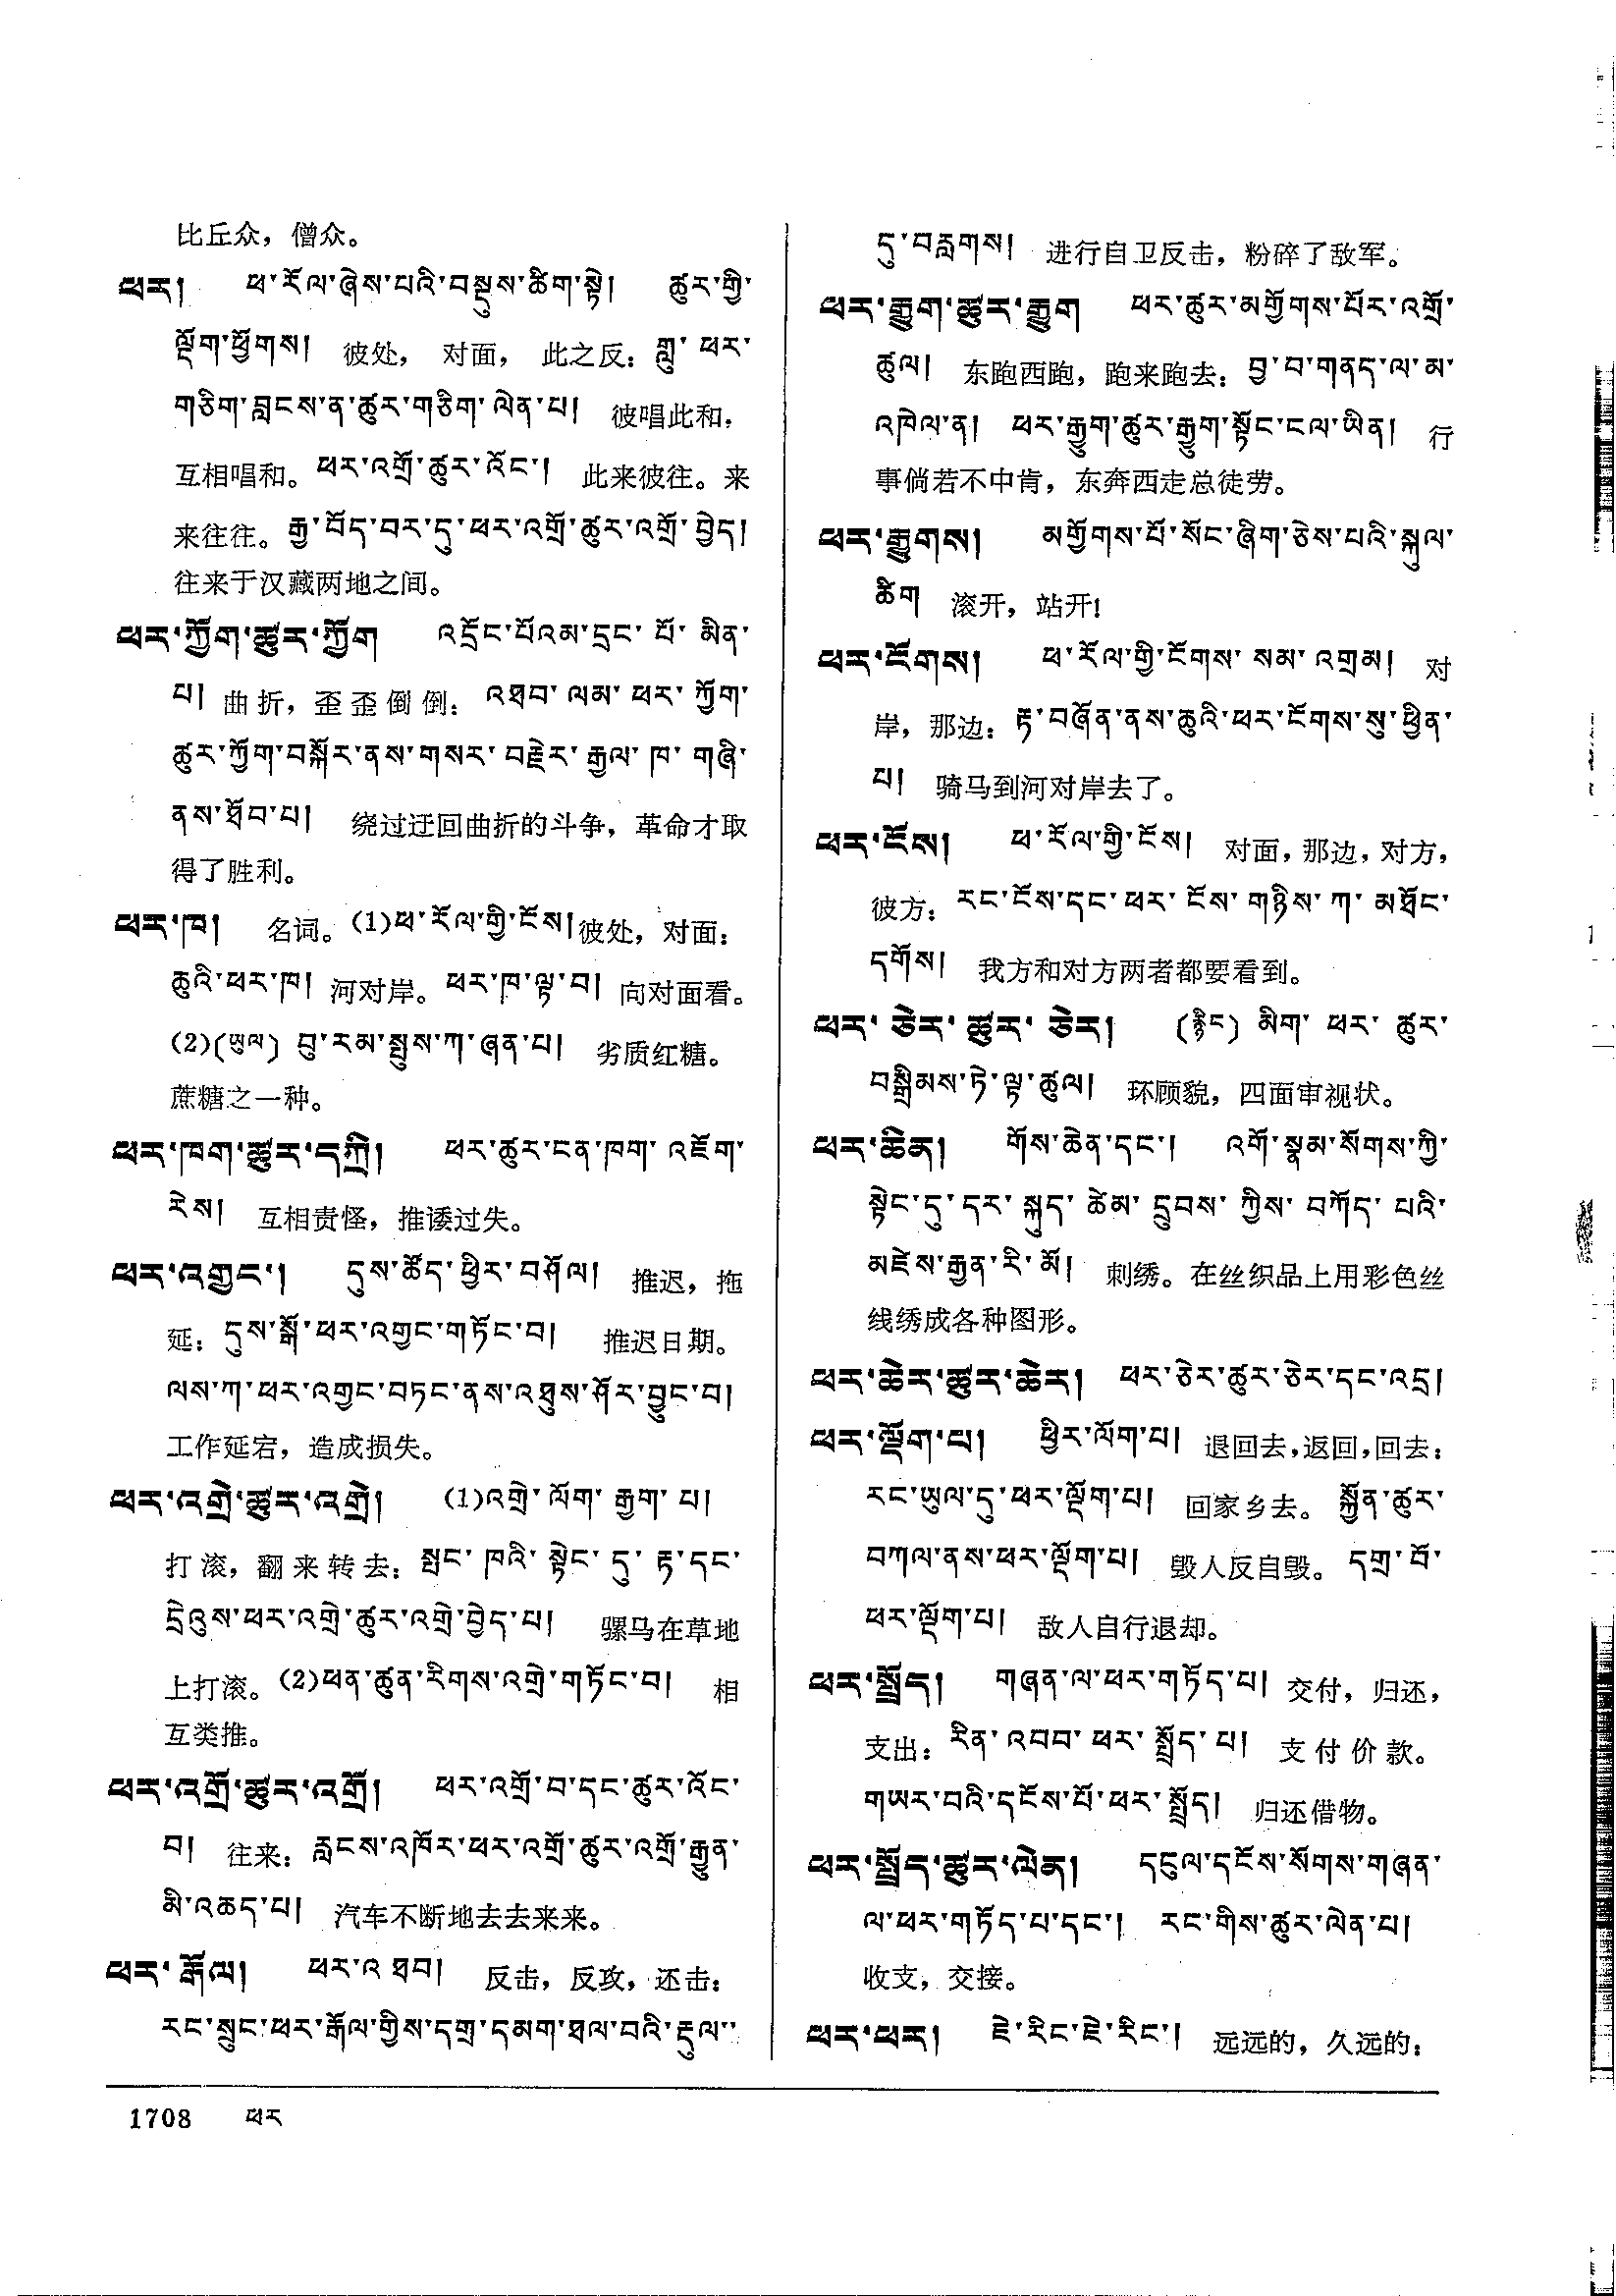 比丘众，僧众。
ཕར། ཕ་རོལ་ཞེས་པའི་བསྡུས་ཚིག་སྟེ། ཚུར་གྱི་
ལྡོག་ཕྱོགས། 彼处， 对面， 此之反：གླུ་ ཕར་
གཅིག་བླངས་ན་ཚུར་གཅིག་ ལེན་པ། 彼唱此和，
互相唱和。ཕར་འགྲོ་ཚུར་འོང་། 此来彼往。来
来往往。རྒྱ་བོད་བར་དུ་ཕར་འགྲོ་ཚུར་འགྲོ་བྱེད།
往来于汉藏两地之间。
ཕར་ཀྱོག་ཚུར་ཀྱོག འདྲོང་པོའམ་དྲང་ པོ་ མིན་
པ། 曲折，歪歪倒倒：འཐབ་ ལམ་ ཕར་ ཀྱོག་
ཚུར་ཀྱོག་བསྐོར་ནས་གསར་ བརྗེར་ རྒྱལ་ ཁ་ གཞི་
ནས་ཐོབ་པ། 绕过迂回曲折的斗争，革命才取
得了胜利。
ཕར་ཁ། 名词。(1)ཕ་རོལ་གྱི་ངོས།彼处，对面：
ཆུའི་ཕར་ཁ། 河对岸。ཕར་ཁ་ལྟ་བ། 向对面看。
(2)(ཡུལ) བུ་རམ་སྤུས་ཀ་ཞན་པ། 劣质红糖。
蔗糖之一种。
ཕར་ཁག་ཚུར་དཀྲི། ཕར་ཚུར་ངན་ཁག་ འཇོག་
རེས། 互相责怪，推诿过失。
ཕར་འགྱང་། དུས་ཚོད་ཕྱིར་བཤོལ། 推迟，拖
延：དུས་སྒོ་ཕར་འགྱང་གཏོང་བ། 推迟日期。
ལས་ཀ་ཕར་འགྱང་བཏང་ནས་འཐུས་ཤོར་བྱུང་བ།
工作延宕，造成损失。
ཕར་འགྲེ་ཚུར་འགྲེ། (1)འགྲེ་ ལོག་ རྒྱག་ པ།
打滚，翻来转去：སྤང་ ཁའི་ སྟེང་ དུ་ རྟ་དང་
དྲེའུས་ཕར་འགྲེ་ཚུར་འགྲེ་བྱེད་པ། 骡马在草地
上打滚。(2)ཕན་ཚུན་རིགས་འགྲེ་གཏོང་བ། 相
互类推。
ཕར་འགྲོ་ཚུར་འགྲོ། ཕར་འགྲོ་བ་དང་ཚུར་འོང་
བ། 往来：རླངས་འཁོར་ཕར་འགྲོ་ཚུར་འགྲོ་རྒྱུན་
མི་འཆད་པ། 汽车不断地去去来来。
ཕར་རྒོལ། ཕར་འ ཐབ། 反击，反攻，还击：
རང་སྲུང་ཕར་རྒོལ་གྱིས་དགྲ་དམག་ཐལ་བའི་རྡུལ་
དུ་བརླགས། 进行自卫反击，粉碎了敌军。
ཕར་རྒྱུག་ཚུར་རྒྱུག ཕར་ཚུར་མགྱོགས་པོར་འགྲོ་
ཚུལ། 东跑西跑，跑来跑去：བྱ་བ་གནད་ལ་མ་
འཁེལ་ན། ཕར་རྒྱུག་ཚུར་རྒྱུག་སྟོང་ངལ་ཡིན། 行
事倘若不中肯，东奔西走总徒劳。
ཕར་རྒྱུགས། མགྱོགས་པོ་སོང་ཞིག་ཅེས་པའི་སྐུལ་
ཚིག 滚开，站开!
ཕར་ངོགས། ཕ་རོལ་གྱི་ངོགས་ སམ་ འགྲམ། 对
岸，那边：རྟ་བཞོན་ནས་ཆུའི་ཕར་ངོགས་སུ་ཕྱིན་
པ། 骑马到河对岸去了。
ཕར་ངོས། ཕ་རོལ་གྱི་ངོས། 对面，那边，对方，
彼方：རང་ངོས་དང་ཕར་ ངོས་ གཉིས་ ཀ་ མཐོང་
དགོས། 我方和对方两者都要看到。
ཕར་ ཅེར་ ཚུར་ ཅེར། (རྙིང) མིག་ ཕར་ ཚུར་
བསྒྲིམས་ཏེ་ལྟ་ཚུལ། 环顾貌，四面审视状。
ཕར་ཆེན། གོས་ཆེན་དང་། འགོ་སྣམ་སོགས་ཀྱི་
སྟེང་དུ་དར་ སྐུད་ ཚེམ་ དྲུབས་ ཀྱིས་ བཀོད་ པའི་
མཛེས་རྒྱན་རི་མོ། 刺绣。在丝织品上用彩色丝
线绣成各种图形。
ཕར་ཆེར་ཚུར་ཆེར། ཕར་ཅེར་ཚུར་ཅེར་དང་འདྲ།
ཕར་ལྡོག་པ། ཕྱིར་ལོག་པ། 退回去，返回，回去：
རང་ཡུལ་དུ་ཕར་ལྡོག་པ། 回家乡去。སྐྱོན་ཚུར་
བཀལ་ནས་ཕར་ལྡོག་པ། 毁人反自毁。དགྲ་བོ་
ཕར་ལྡོག་པ། 敌人自行退却。
ཕར་སྤྲོད། གཞན་ལ་ཕར་གཏོད་པ། 交付，归还，
支出：རིན་འབབ་ ཕར་ སྤྲོད་ པ། 支付价款。
གཡར་བའི་དངོས་པོ་ཕར་སྤྲོད། 归还借物。
ཕར་སྤྲོད་ཚུར་ལེན། དངུལ་དངོས་སོགས་གཞན་
ལ་ཕར་གཏོད་པ་དང་། རང་གིས་ཚུར་ལེན་པ།
收支，交接。
ཕར་ཕར། ཇེ་རིང་ཇེ་རིང་། 远远的，久远的：
1708 ཕར